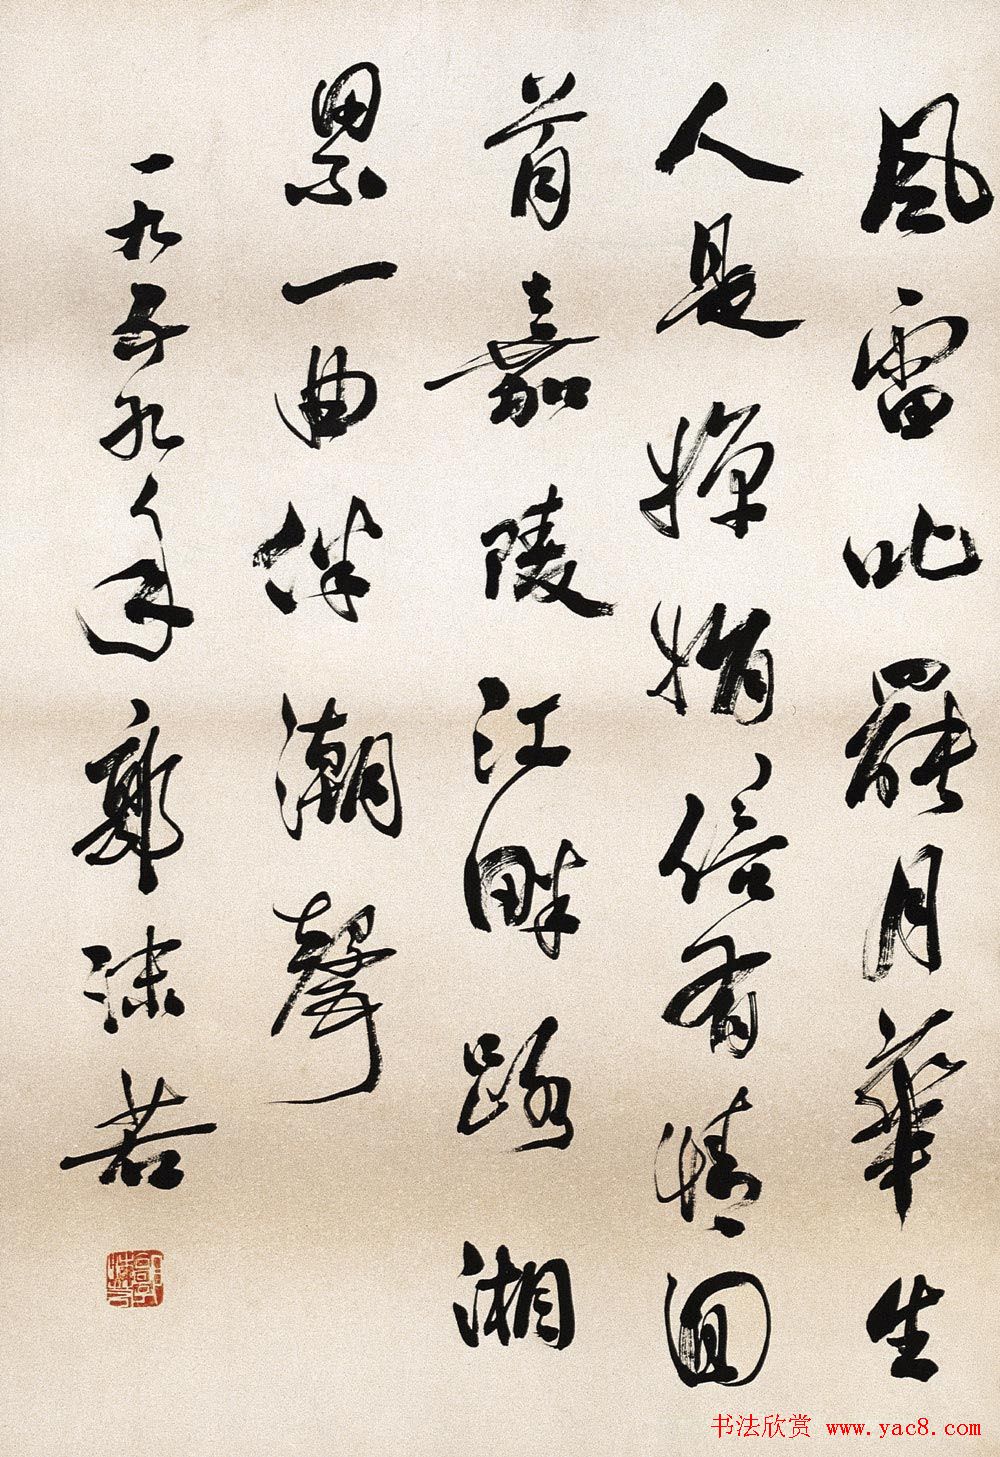 風雷叱罷月華生
人是嬋娟倍有情回
首嘉陵江畔路湘
累一曲伴潮聲
一九五九年郭沫若
书法欣赏 www.yac8.com